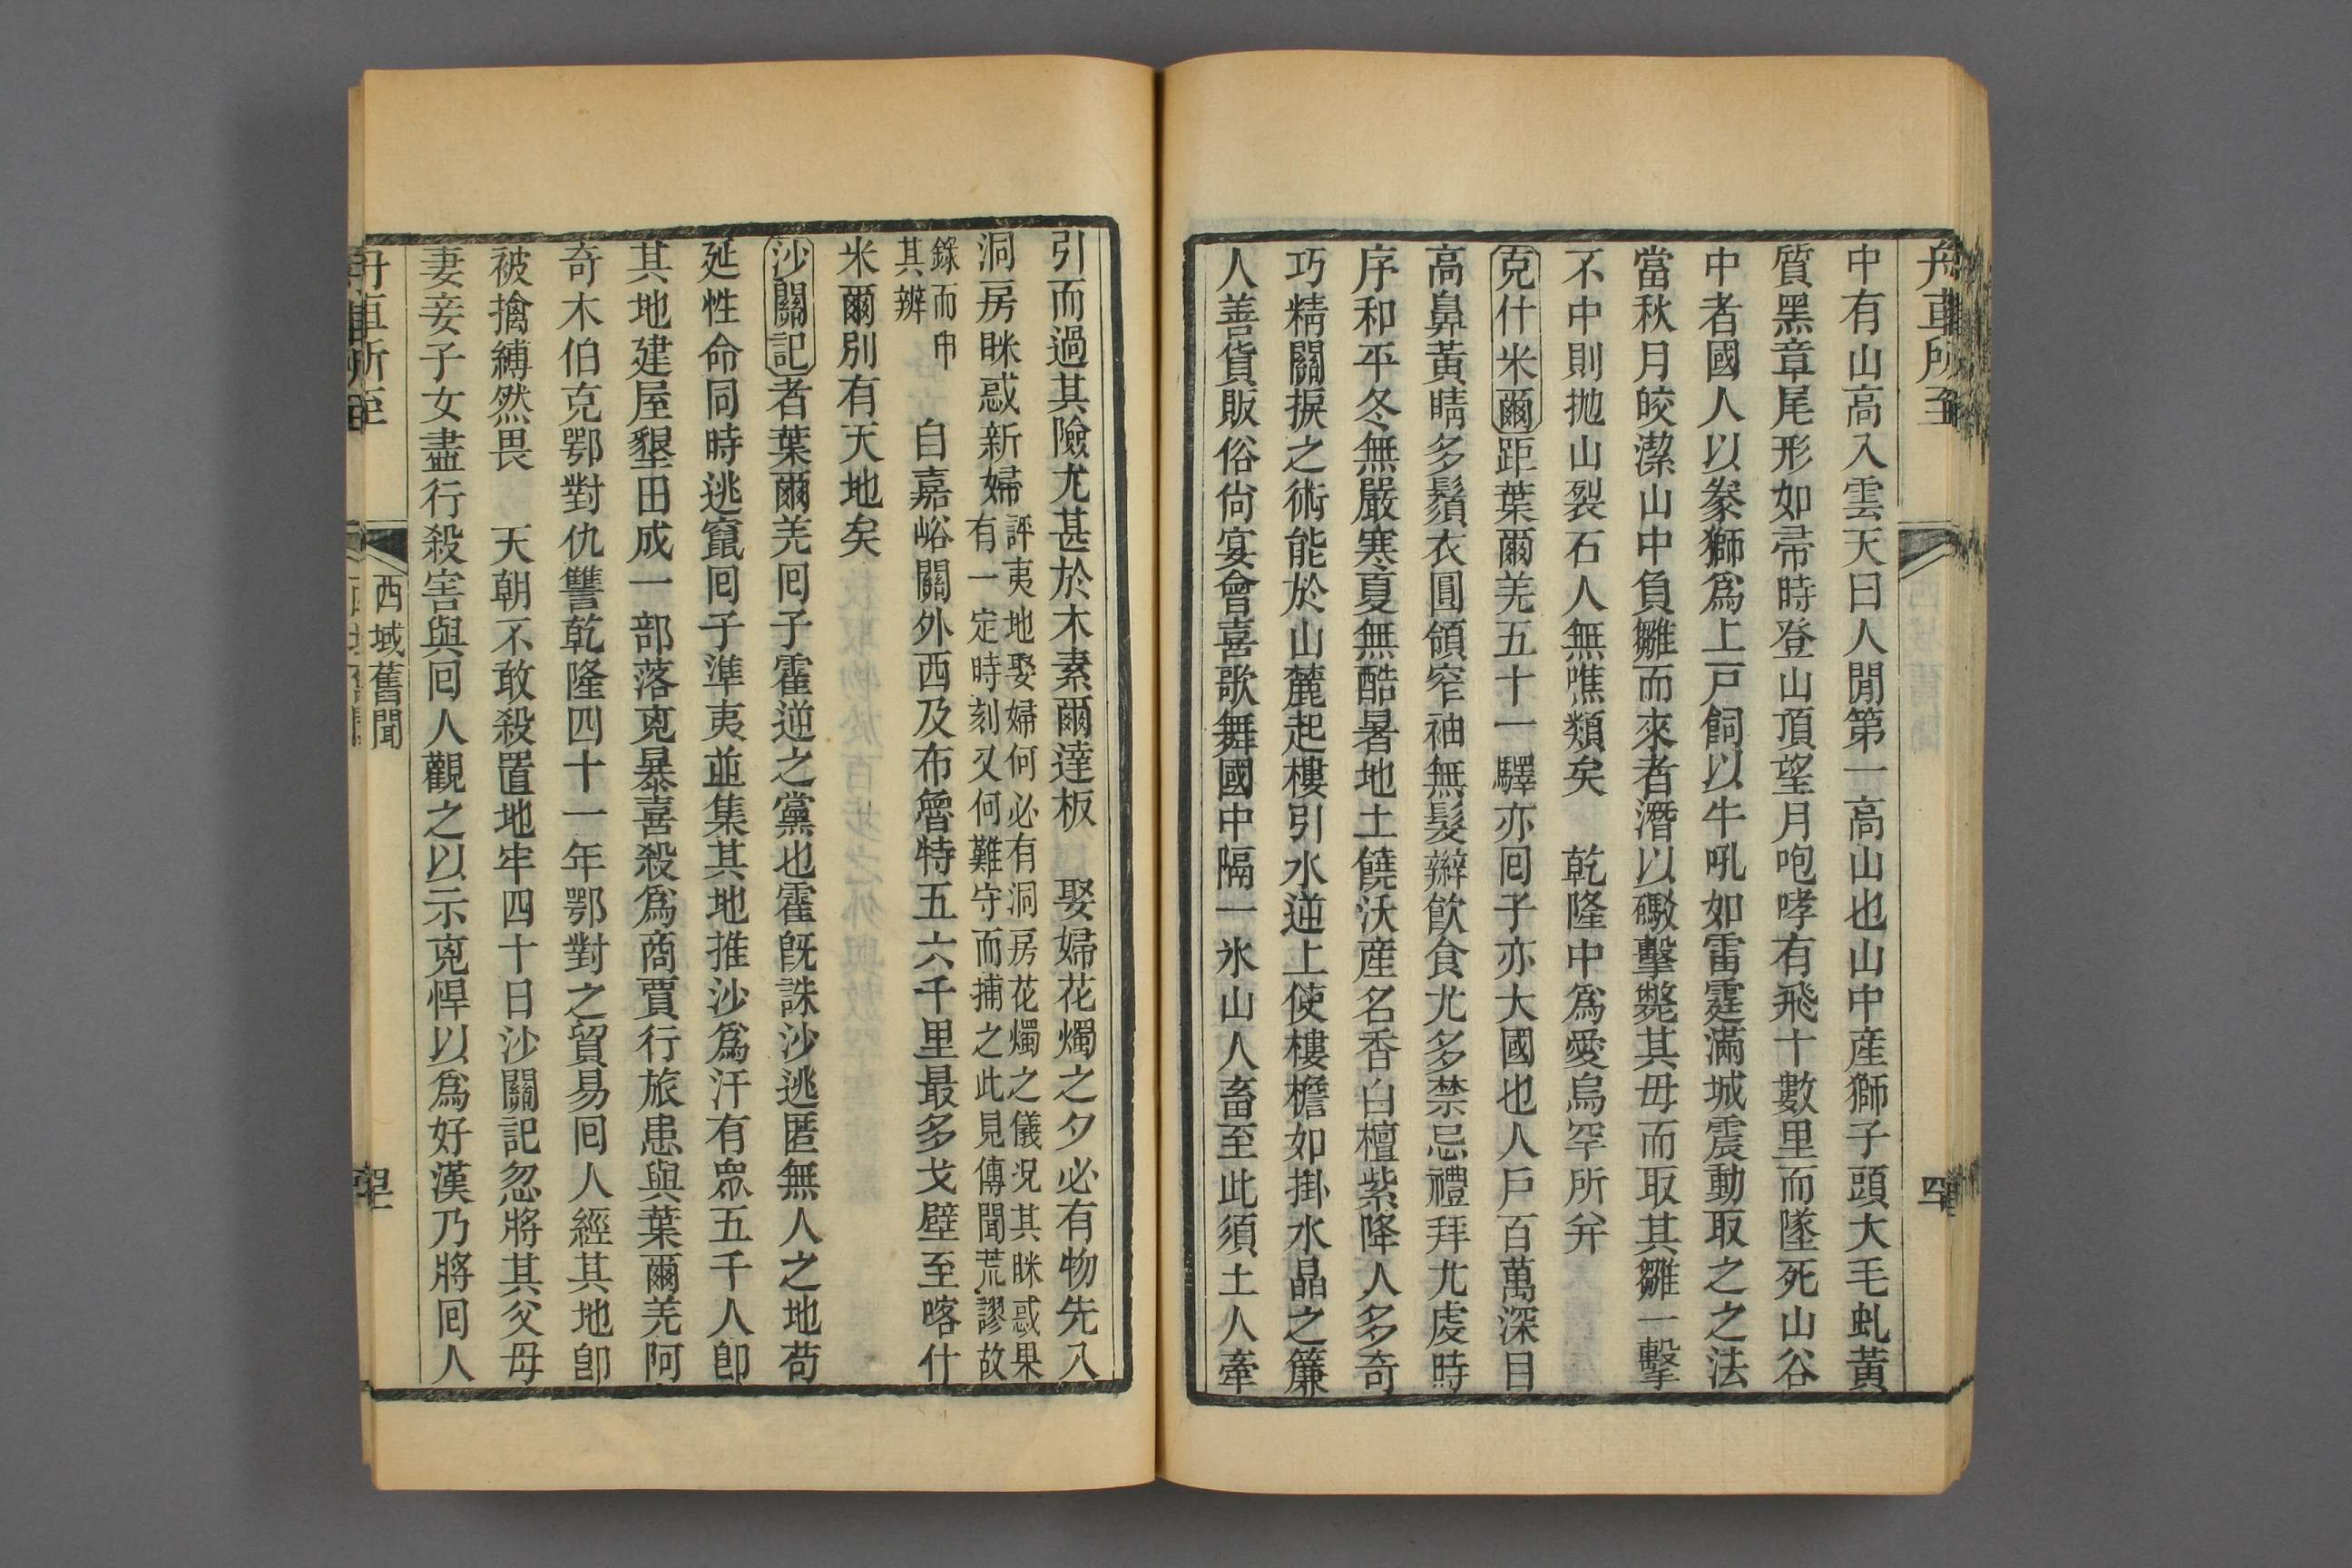 舟車所至
中有山高入雲天曰人閒第一高山也山中産獅子頭大毛虬黃
質黑章尾形如帚時登山頂望月咆哮有飛十數里而墜死山谷
中者國人以豢獅爲上戸飼以牛吼如雷霆滿城震動取之之法
當秋月皎潔山中負雛而來者潛以礟擊斃其母而取其雛一擊
不中則拋山裂石人無噍類矣　乾隆中爲愛烏罕所弁
克什米爾距葉爾羌五十一驛亦囘子亦大國也人戸百萬深目
高鼻黃睛多鬚衣圓領窄袖無髮辮飮食尤多禁忌禮拜尤虔時
序和平冬無嚴寒夏無酷暑地土饒沃産名香白檀紫降人多奇
巧精關捩之術能於山麓起樓引水逆上使樓檐如掛水晶之簾
人善貨販俗尚宴會喜歌舞國中隔一氷山人畜至此須土人牽
引而過其險尤甚於木素爾達板　娶婦花燭之夕必有物先入
洞房眯惑新婦評夷地娶婦何必有洞房花燭之儀况其眯惑果
有一定時刻又何難守而捕之此見傳聞荒謬故
錄而申
其辨　自嘉峪關外西及布魯特五六千里最多戈壁至喀什
米爾別有天地矣
沙關記者葉爾羌囘子霍逆之黨也霍旣誅沙逃匿無人之地苟
延性命同時逃竄囘子準夷並集其地推沙爲汗有眾五千人卽
其地建屋墾田成一部落兇暴喜殺爲商賈行旅患與葉爾羌阿
奇木伯克鄂對仇讐乾隆四十一年鄂對之貿易囘人經其地卽
被擒縛然畏　天朝不敢殺置地牢四十日沙關記忽將其父母
妻妾子女盡行殺害與囘人觀之以示兇悍以爲好漢乃將囘人
舟車所至
西域舊聞